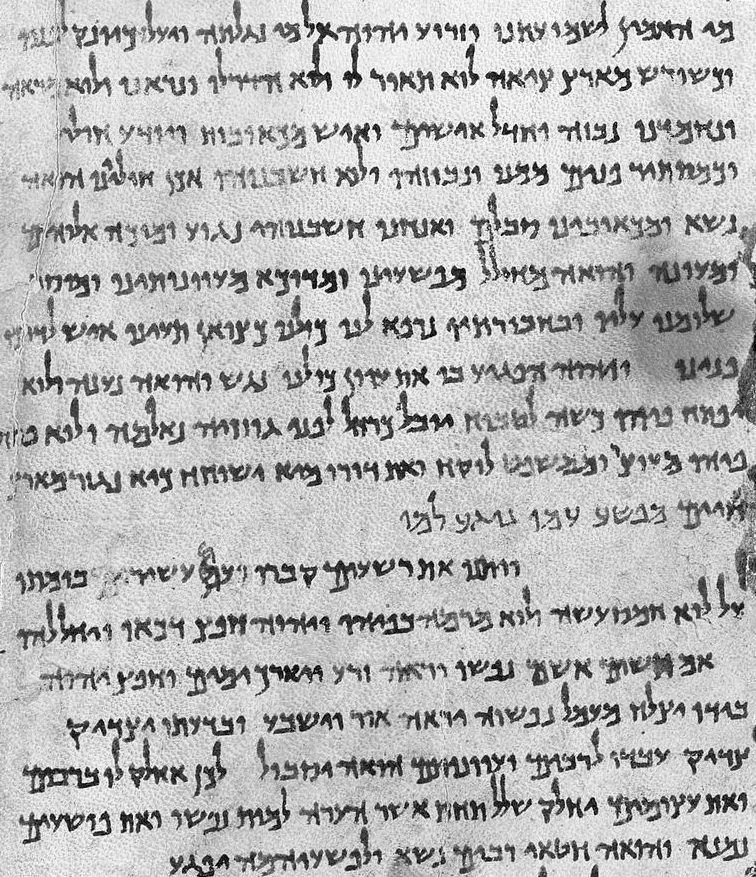 מי האמין לשמועתנו וזרוע יהוה אל מי נגלתה ויעל כיונק לפניו
וכשורש מארץ ציה לוא תואר לו ולוא הדר לו ונראנו ולוא מראה
ונחמדנו נבזה וחדל אישים ואיש מכאובות ויודע חולי
וכמסתיר פנים ממנו ונבוזהו ולוא חשבנוהו אכן חוליינו הואה
נשא ומכאובינו סבלם ואנחנו חשבנוהו נגוע ומוכה אלוהים
ומעונה והואה מחולל מפשעינו ומדוכא מעוונותינו ומוסר
שלומנו עליו ובחבורתיו נרפא לנו כולנו כצואן תעינו איש לדרכו
פנינו ויהוה הפגיע בו את עוון כולנו נגש והואה נענה ולוא
יפתח פיהו כשה לטבוח יובל כרחל לפני גוזזיה נאלמה ולוא פתח
פיהו מעוצר וממשפט לוקח ואת דורו מיא ישוחח כיא נגזר מארץ
חיים מפשע עמו נוגע למו
ויתנו את רשעים קברו ועם עשירים בומתו
על לוא חמס עשה ולוא מרמה בפיהו ויהוה חפץ דכאו ויחללהו
אם תשים אשם נפשו יראה זרע ויארך ימים וחפץ יהוה
בידו יצלח מעמל נפשוה יראה אור וישבע ובדעתו יצדיק
צדיק עבדו לרבים ועוונותם הואה יסבול לכן אחלק לו ברבים
ואת עצומים יחלק שלל תחת אשר הערה למות נפשו ואת פושעים
נמנא והואה חטאי רבים נשא ולפשעיהמה יפגע